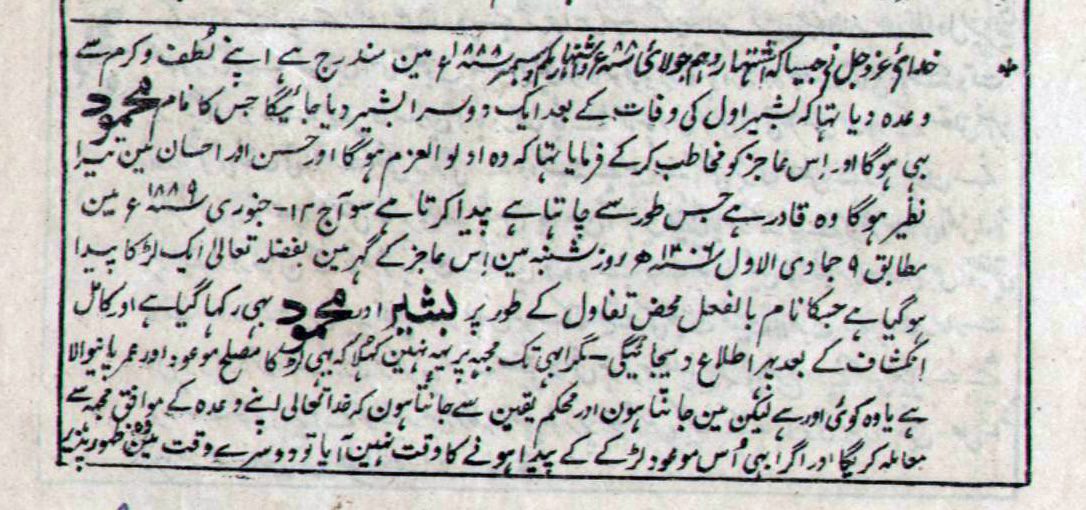 * خدائے عزوجل نے جیسا کہ اشتہار دہم جولائی ۸۸ سنہ ء و اشتہار یکم دسمبر سنہ ۱۸۸۸ء مین مندرج ہے اپنے لطف و کرم سے
وعدہ دیا تہا کہ بشیر اول کی وفات کے بعد ایک دوسرا بشیر دیا جائیگا جس کا نام محمود
بہی ہوگا اور اِس عاجز کو مخاطب کرکے فرمایا تہا کہ وہ اولوالعزم ہوگا اور حسن اور احسان مین تیرا
نظیر ہوگا وہ قادر ہے جس طور سے چاہتا ہے پیدا کرتا ہے سو آج ۱۲ - جنوری سنہ ۱۸۸۹ء مین
مطابق ۹ جمادی الاول سنہ ۱۳۰۶ھ روز شنبہ مین اِس عاجز کے گہر مین بفضلہ تعالیٰ ایک لڑکا پیدا
ہوگیا ہے جسکا نام بالفعل محض تفاول کے طور پر بشیر اور محمود بہی رکہا گیا ہے اور کامل
انکشاف کے بعد پہر اطلاع دیجائیگی - مگر ابہی تک مجہہ پر یہہ نہین کہلا کہ یہی لڑکا مصلح موعود اور عمر پانیوالا
ہے یا وہ کوئی اور ہے لیکن مین جانتا ہون اور محکم یقین سے جانتا ہون کہ خدا تعالیٰ اپنے وعدہ کے موافق مجہہ سے
معاملہ کریگا اور اگر ابہی اُس موعود لڑکے کے پیدا ہونے کا وقت نہین آیا تو دوسرے وقت مین وہ ظہور پذیر